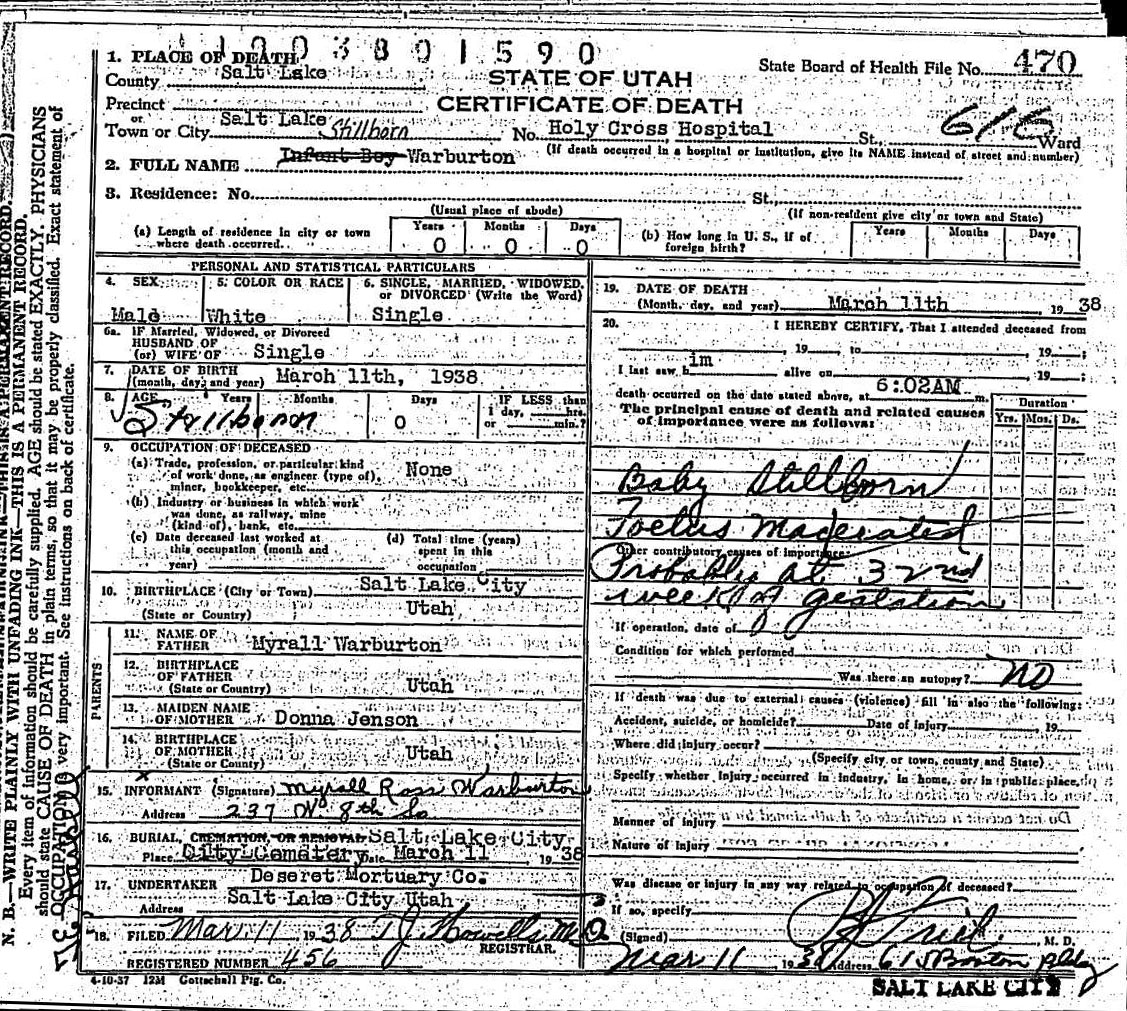 1 0 0 3 8 0 1 5 9 0
1. PLACE OF DEATH
County Salt Lake
STATE OF UTAH
State Board of Health File No. 470
Precinct
CERTIFICATE OF DEATH
or
Town or City Salt Lake No. Holy Cross Hospital St., Ward
(If death occurred in a hospital or institution, give its NAME instead of street and number)
Stillborn
2. FULL NAME Infant Boy Warburton
3. Residence: No. St.,
(Usual place of abode) (If non-resident give city or town and State)
(a) Length of residence in city or town where death occurred. Years 0 Months 0 Days 0
(b) How long in U. S., if of foreign birth? Years Months Days
PERSONAL AND STATISTICAL PARTICULARS
4. SEX Male
5. COLOR OR RACE White
6. SINGLE, MARRIED, WIDOWED, or DIVORCED (Write the Word) Single
6a. IF Married, Widowed, or Divorced
HUSBAND OF
(or) WIFE OF Single
7. DATE OF BIRTH
(month, day, and year) March 11th, 1938
8. AGE Years Months Days 0 IF LESS than
1 day, hrs.
or min.?
Stillborn
9. OCCUPATION OF DECEASED
(a) Trade, profession, or particular kind
of work done, as engineer (type of),
miner, bookkeeper, etc. None
(b) Industry or business in which work
was done, as railway, mine
(kind of), bank, etc.
(c) Date deceased last worked at
this occupation (month and
year)
(d) Total time (years)
spent in this
occupation
10. BIRTHPLACE (City or Town) Salt Lake City
(State or Country) Utah
PARENTS
11. NAME OF
FATHER Myrall Warburton
12. BIRTHPLACE
OF FATHER
(State or Country) Utah
13. MAIDEN NAME
OF MOTHER Donna Jenson
14. BIRTHPLACE
OF MOTHER
(State or Country) Utah
15. INFORMANT (Signature) Myrall Ross Warburton
Address 237 W. 8th So
16. BURIAL, CREMATION, OR REMOVAL Salt Lake City
Place City Cemetery Date March 11 1938
17. UNDERTAKER Deseret Mortuary Co.
Address Salt Lake City Utah
18. FILED Mar 11 1938 T J Howells M D
REGISTRAR.
REGISTERED NUMBER 456
4-10-37 12M Gottschall Ptg. Co.
19. DATE OF DEATH
(Month, day, and year) March 11th 1938
20. I HEREBY CERTIFY, That I attended deceased from
19 , to 19 ;
I last saw him alive on 19 ;
death occurred on the date stated above, at 6:02AM m.
The principal cause of death and related causes
of importance were as follows:
Duration
Yrs. Mos. Ds.
Baby Stillborn
Foetus Macerated
Other contributory causes of importance:
Probably at 32nd
week of gestation
If operation, date of
Condition for which performed
Was there an autopsy? No
If death was due to external causes (violence) fill in also the following:
Accident, suicide, or homicide? Date of injury 19
Where did injury occur?
(Specify city or town, county and State)
Specify whether injury occurred in industry, in home, or in public place.
Manner of injury
Nature of injury
Was disease or injury in any way related to occupation of deceased?
If so, specify
(Signed) M. D.
Mar 11 1938 Address 615 Boston Bldg
SALT LAKE CITY
N. B.—WRITE PLAINLY WITH UNFADING INK—THIS IS A PERMANENT RECORD.
Every item of information should be carefully supplied. AGE should be stated EXACTLY. PHYSICIANS
should state CAUSE OF DEATH in plain terms, so that it may be properly classified. Exact statement of
OCCUPATION is very important. See instructions on back of certificate.